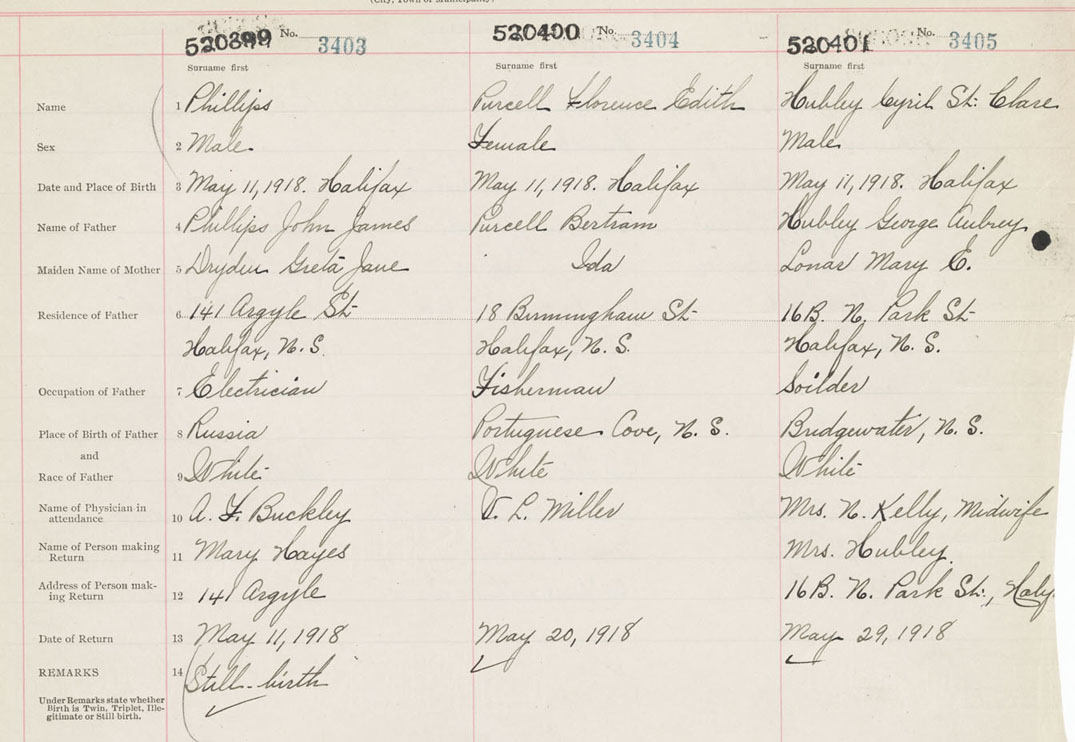 (City, Town or Municipality)
520399 No. 3403 520400 No. 3404 520401 No. 3405
Surname first Surname first Surname first
Name 1 Phillips Purcell Florence Edith Hubley Cyril St. Clare
Sex 2 Male. Female Male
Date and Place of Birth 3 May 11, 1918. Halifax May 11, 1918. Halifax May 11, 1918. Halifax
Name of Father 4 Phillips John James Purcell Bertram Hubley George Aubrey
Maiden Name of Mother 5 Dryden Greta Jane Ida Lonar Mary E.
Residence of Father 6 141 Argyle St 18 Birmingham St 16B. N. Park St
Halifax, N.S. Halifax, N.S. Halifax, N.S.
Occupation of Father 7 Electrician Fisherman Soilder
Place of Birth of Father 8 Russia Portuguese Cove, N.S. Bridgewater, N.S.
and
Race of Father 9 White White White
Name of Physician in
attendance 10 A. F. Buckley V. L. Miller Mrs. N. Kelly, Midwife
Name of Person making
Return 11 Mary Hayes Mrs. Hubley
Address of Person mak-
ing Return 12 141 Argyle 16B. N. Park St.,
Date of Return 13 May 11, 1918 May 20, 1918 May 29, 1918
REMARKS 14 Still-birth
Under Remarks state whether
Birth is Twin, Triplet, Ille-
gitimate or Still birth.